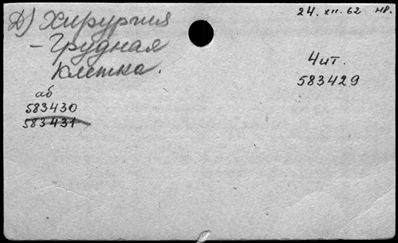 Д) Хирургия
- Грудная
клетка.
24. XII. 62 нр.
Чит.
583429
аб
583430
583431